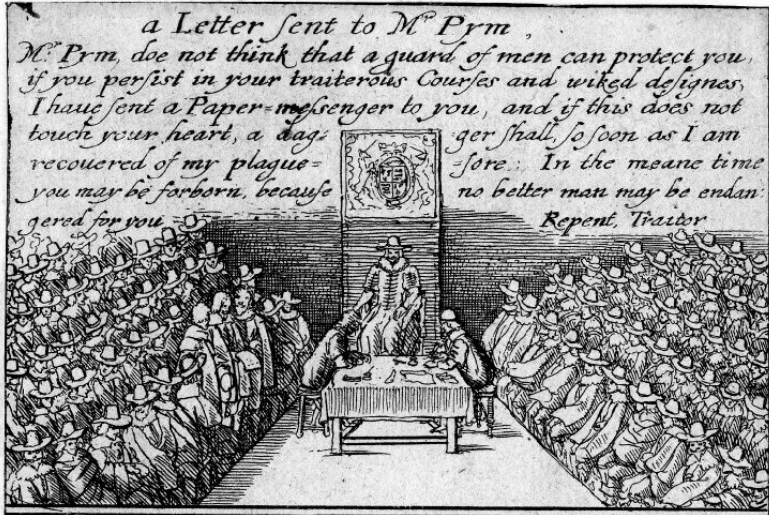 a Letter sent to Mr Pym,
Mr. Pym, doe not think that a guard of men can protect you,
if you persist in your traiterous Courses and wiked designes,
I haue sent a Paper=messenger to you, and if this does not
touch your heart, a dag= ger shall, so soon as I am
recouered of my plague= =sore: In the meane time
you may be forborn, because no better man may be endan:
gered for you Repent, Traitor